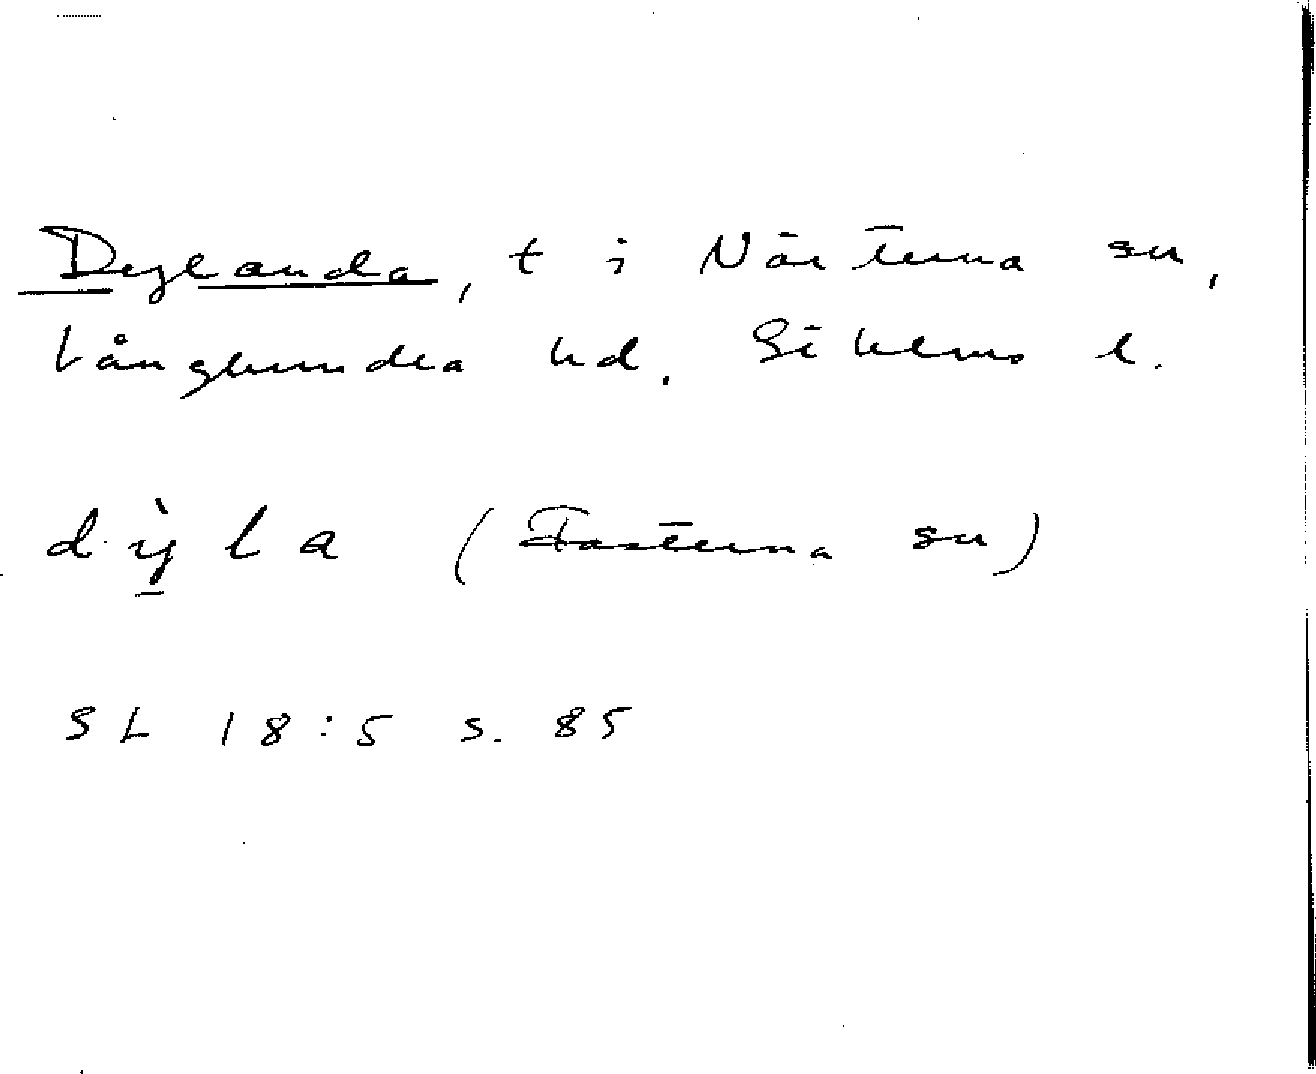 Dyglanda, t i Närtuna sn,
Långhundra hd. Sthlms l.
dỳla (Fasterna sn)
SL 18:5 s. 85